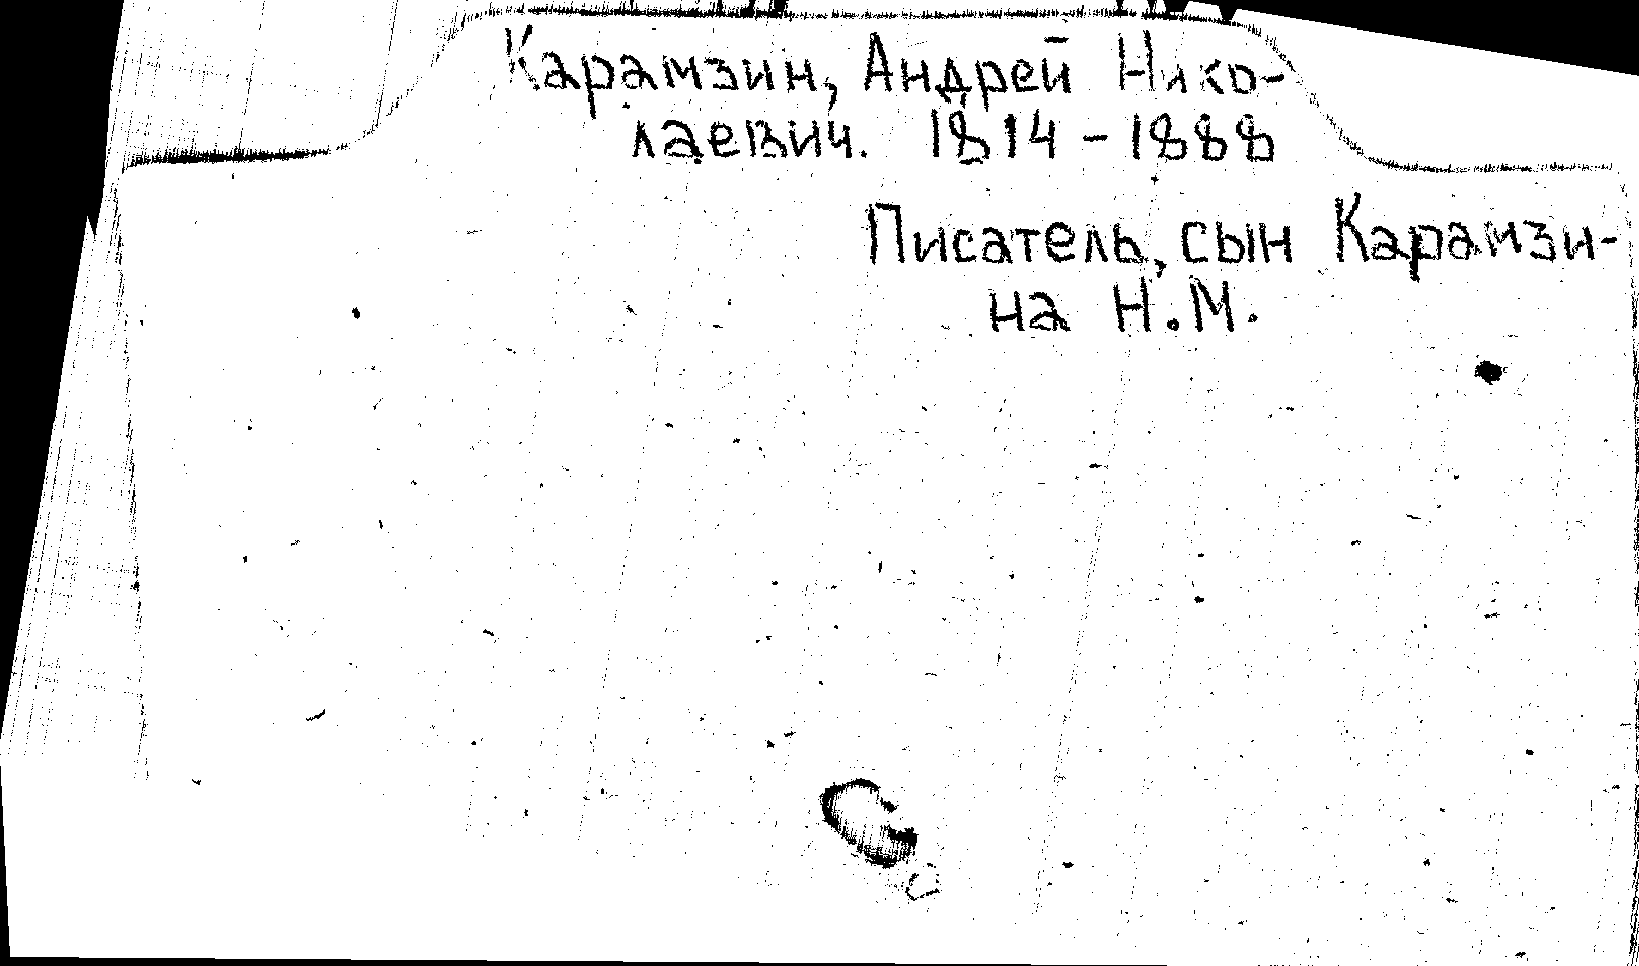 Карамзин, Андрей Нико-
лаевич. 1814 - 1888
Писатель, сын Карамзи-
на Н.М.